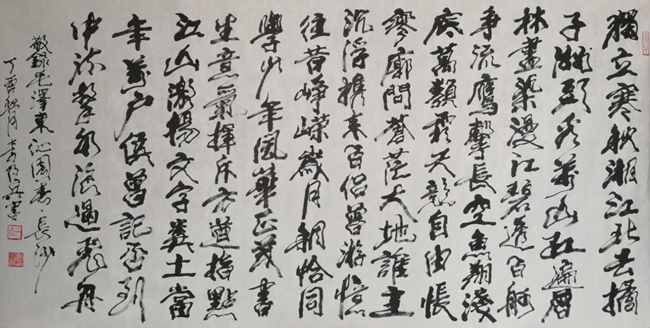 獨立寒秋湘江北去橘
子洲頭看萬山紅遍層
林盡染漫江碧透百舸
爭流鷹擊長空魚翔淺
底萬類霜天競自由悵
寥廓問蒼茫大地誰主
沉浮攜來百侶曾游憶
往昔崢嶸歲月稠恰同
學少年風華正茂書
生意氣揮斥方遒指點
江山激揚文字糞土當
年萬戶侯曾記否到
中流擊水浪遏飛舟
敬錄毛澤東沁園春·長沙
丁酉秋月